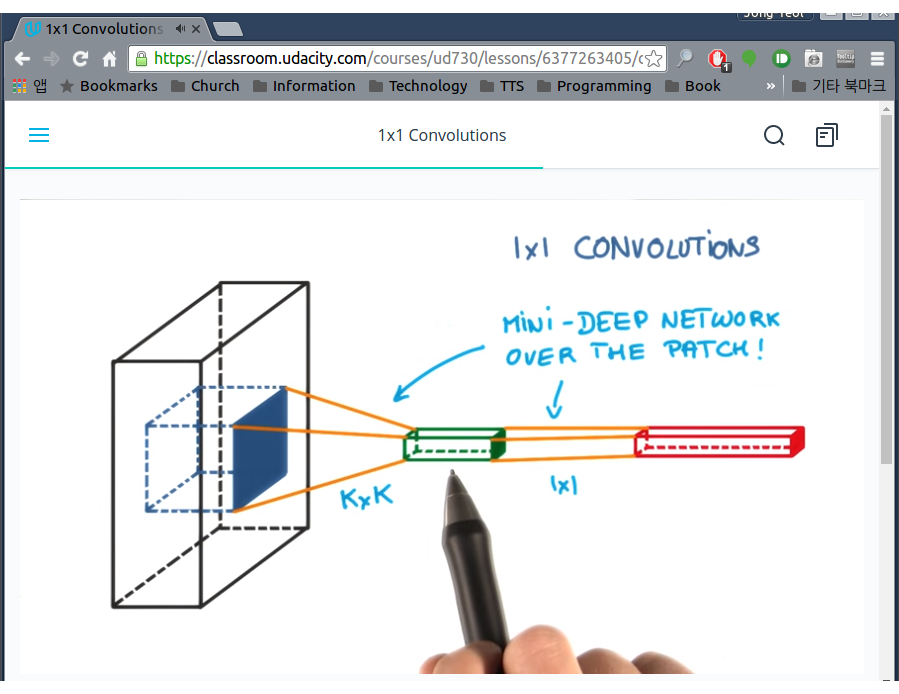 1x1 Convolutions
https://classroom.udacity.com/courses/ud730/lessons/6377263405/c
1
앱 Bookmarks Church Information Technology TTS Programming Book » 기타 북마크
1x1 Convolutions
1x1 CONVOLUTIONS
MINI-DEEP NETWORK
OVER THE PATCH!
KxK
1x1